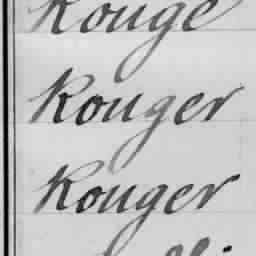 Rouge
Rouger
Rouger